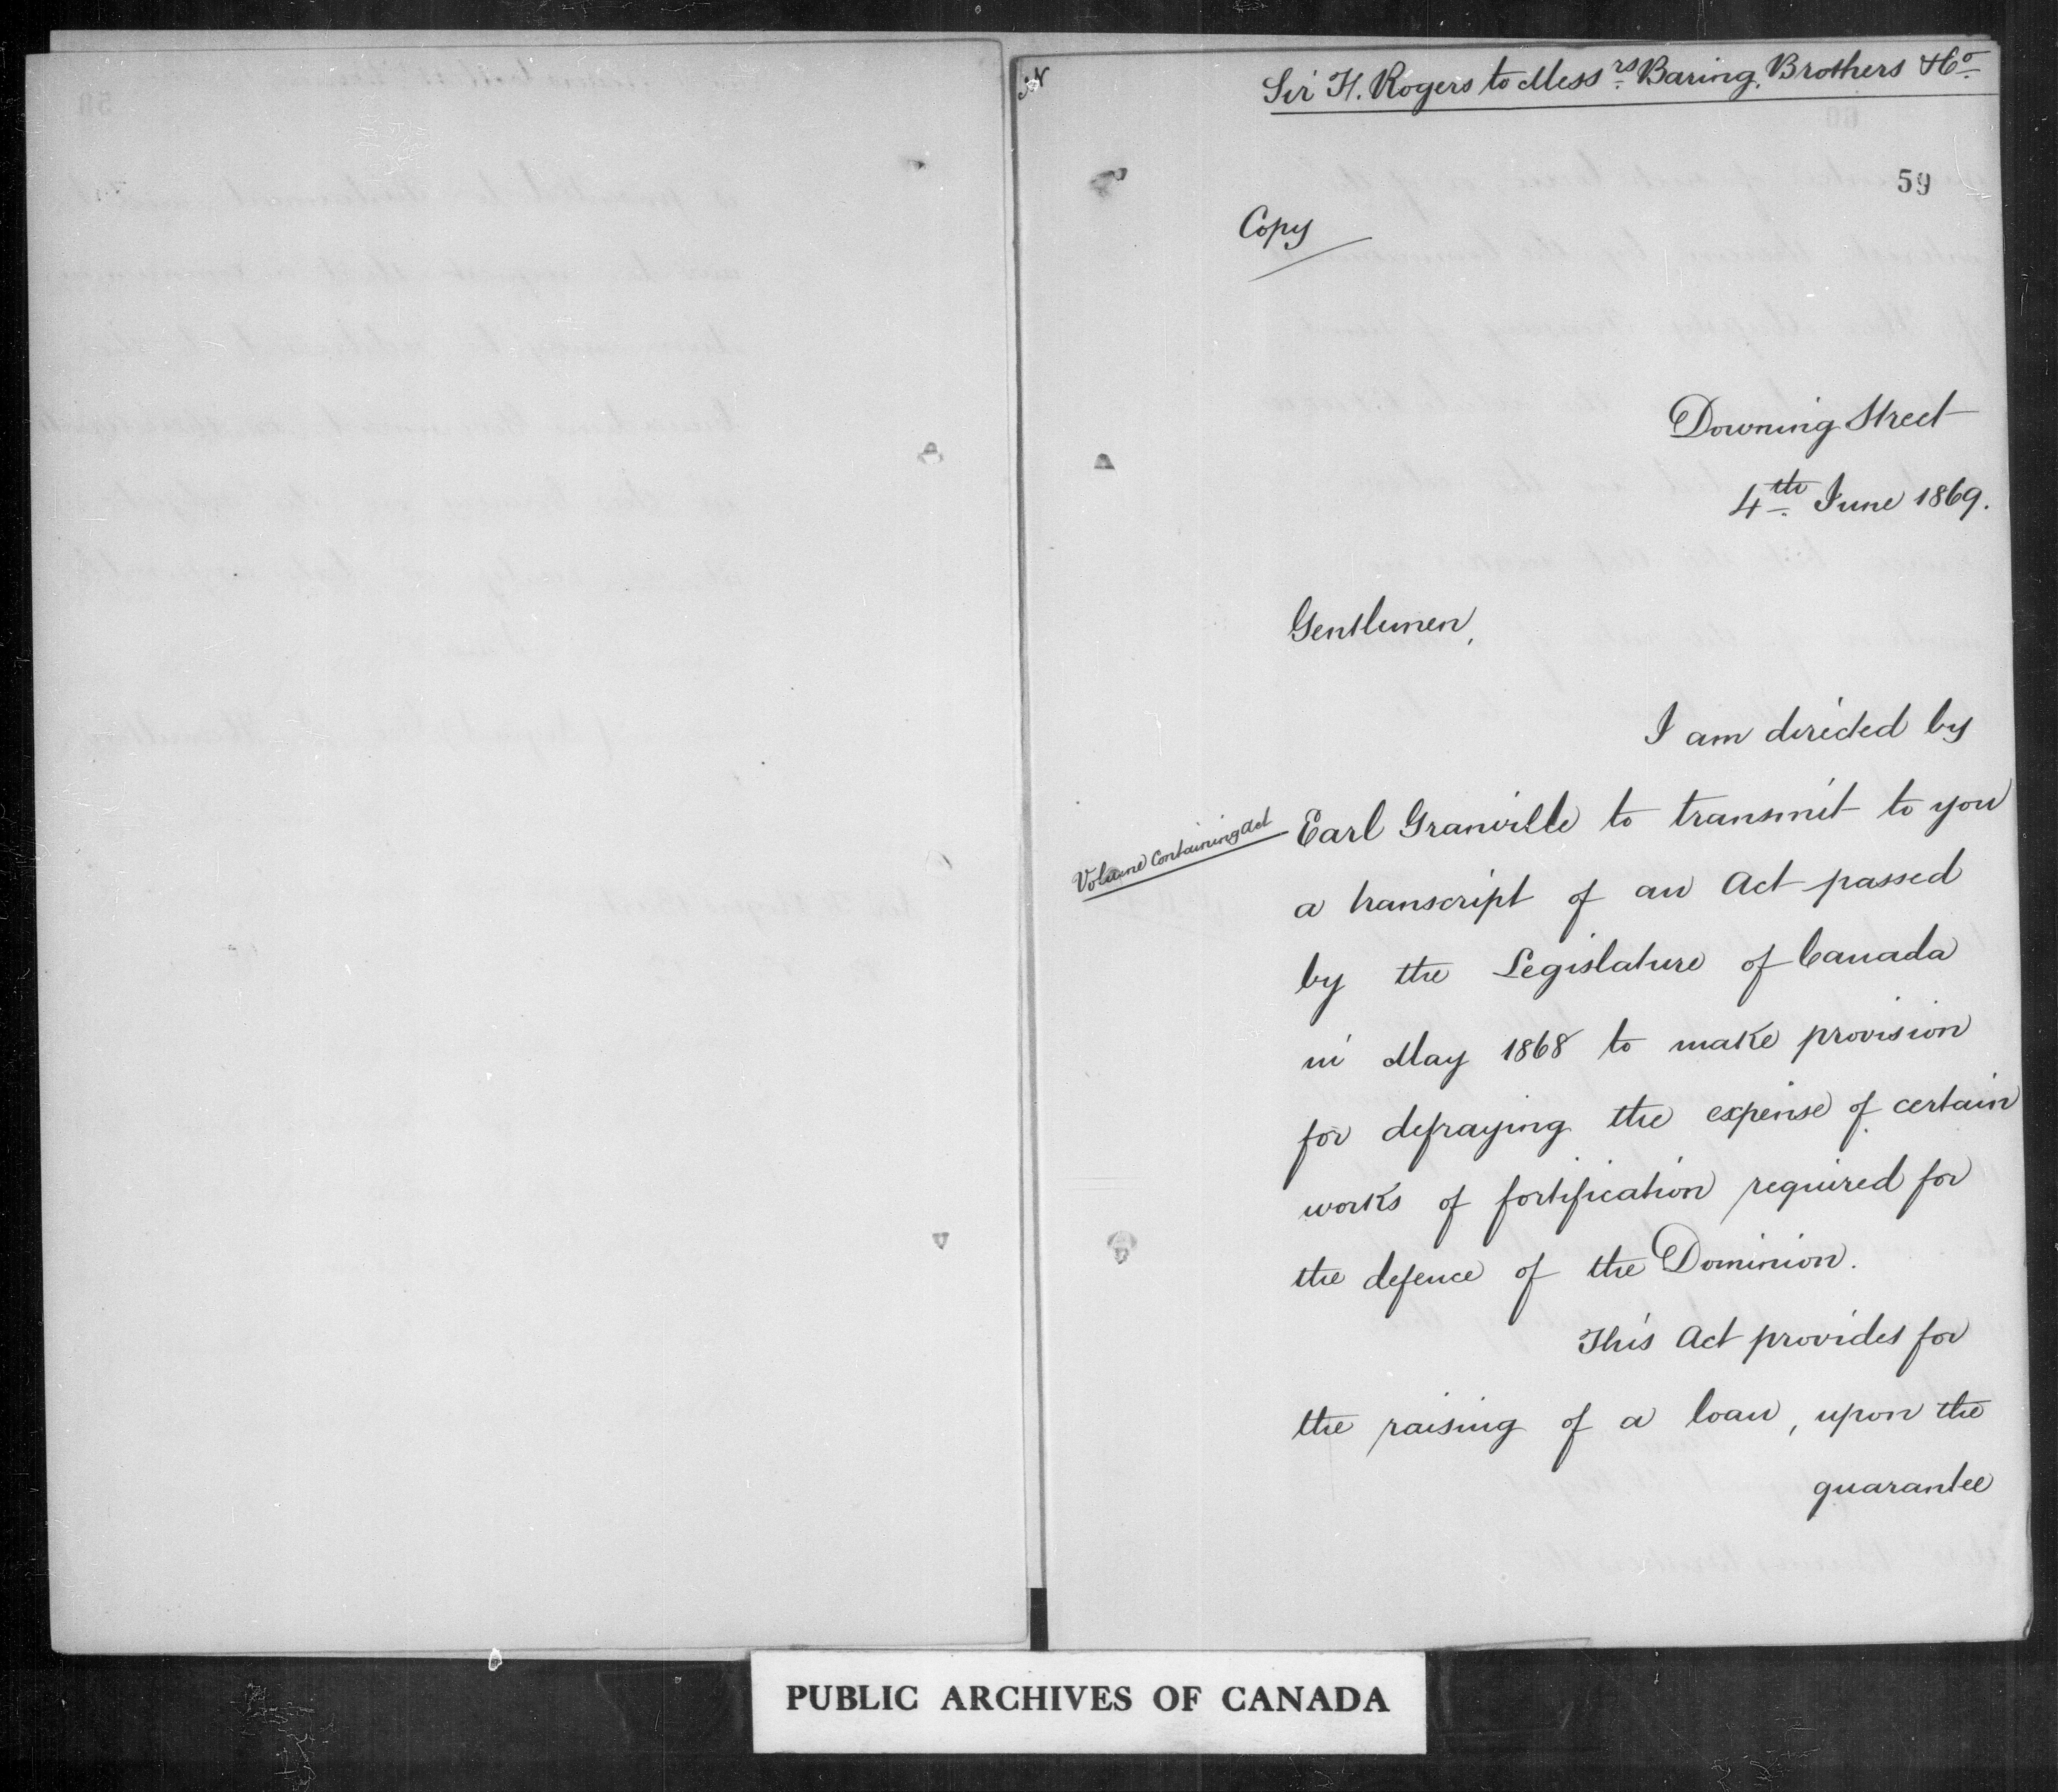 Sir H. Rogers to Mess.rs Baring, Brothers & Co.
59
Copy
Downing Street
4th June 1869.
Gentlemen,
I am directed by
Volume Containing Act
Earl Granville to transmit to you
a transcript of an Act passed
by the Legislature of Canada
in May 1868 to make provision
for defraying the expense of certain
works of fortification required for
the defence of the Dominion.
This Act provides for
the raising of a loan, upon the
guarantee
PUBLIC ARCHIVES OF CANADA